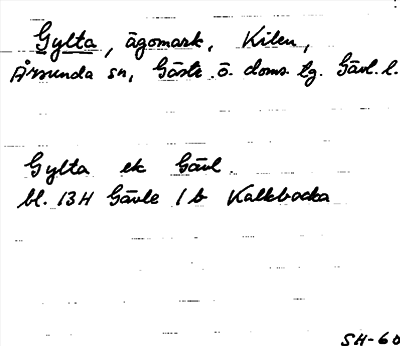 Gylta, ägomark, Kilen,
Årsunda sn, Gästr. ö. doms. tg. Gävl. l.
Gylta ek Gävl.
bl. 13H Gävle 1b Kalkbacka
SH-60